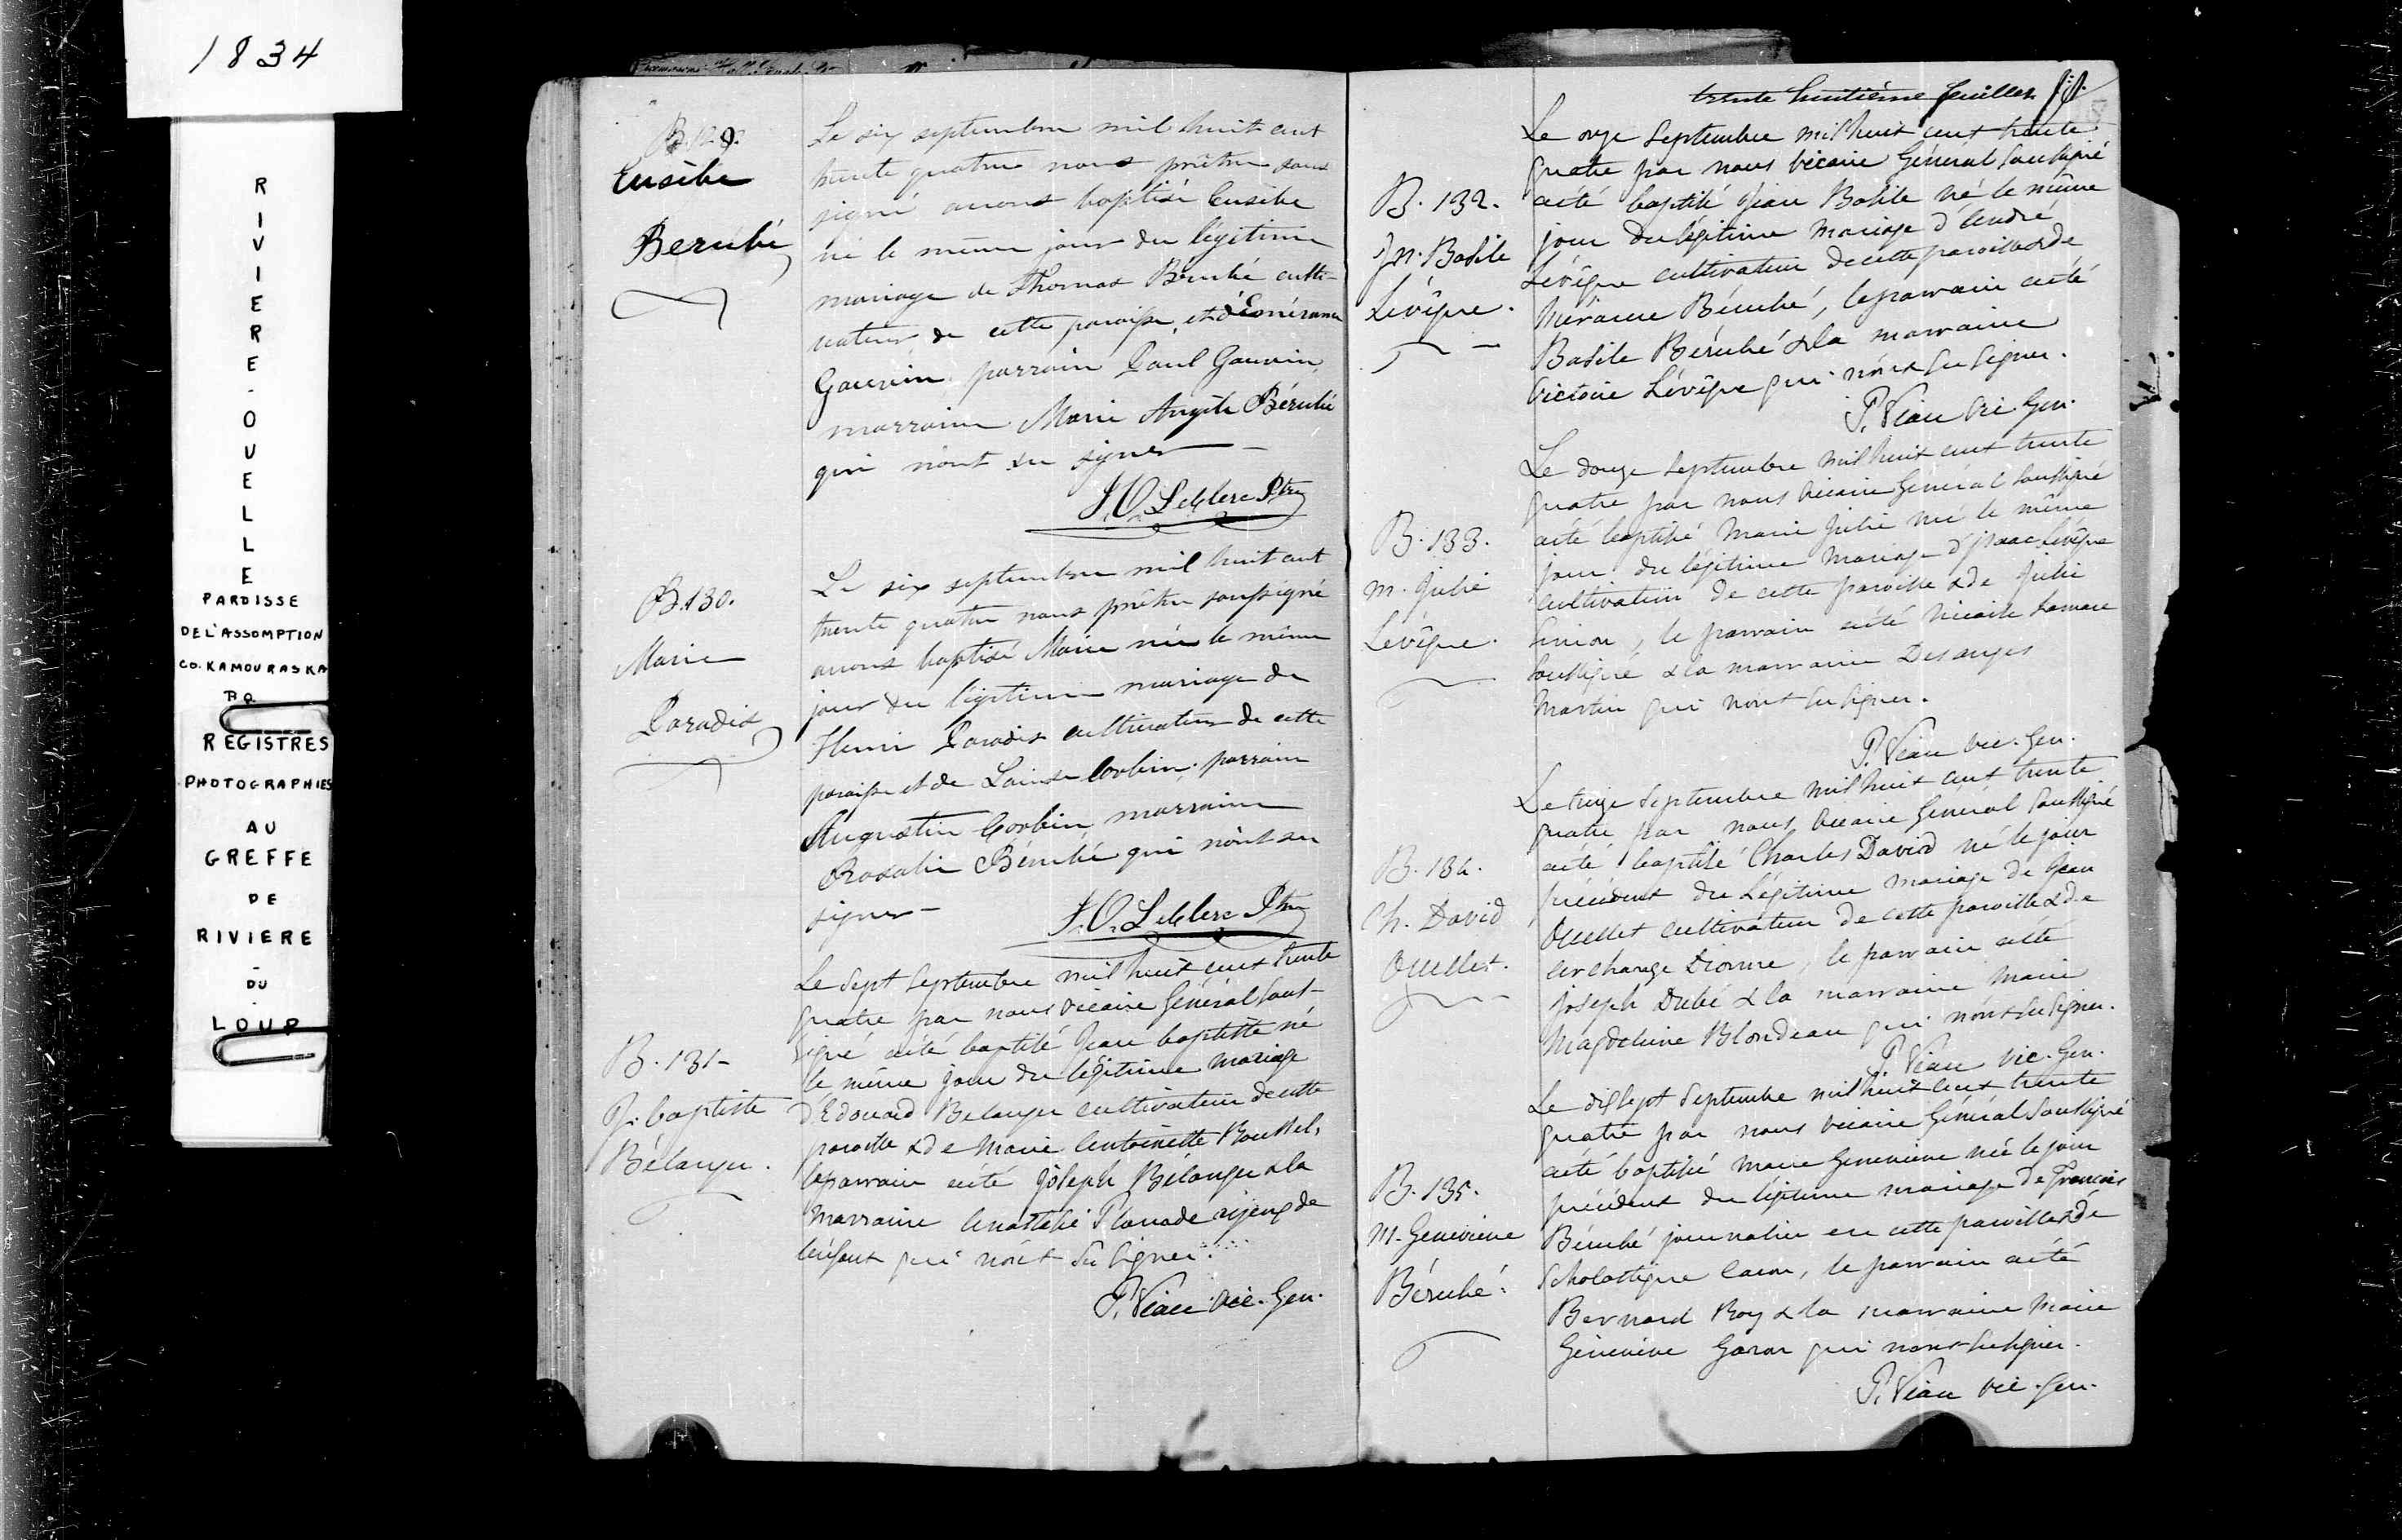 1834
RIVIERE-OUELLE
PAROISSE
DE L'ASSOMPTION
CO. KAMOURASKA
P.Q.
REGISTRES
PHOTOGRAPHIES
AU
GREFFE
DE
RIVIERE
-
DU
-
LOUP
B.129.
Eusèbe
Berubé
Le six septembre mil huit cent
trente quatre nous prêtre sous
signé avons baptisé Eusèbe
né le même jour du légitime
mariage de Thomas Bérubé culti-
vateur de cette paroisse, et d'Emérance
Gauvin parrain Paul Gauvin
marraine Marie Angèle Bérubé
qui n'ont su signer —
J.O. Leclerc Ptre
B.130.
Marie
Paradis
Le six septembre mil huit cent
trente quatre nous prêtre soussigné
avons baptisé Marie née le même
jour du légitime mariage de
Henri Paradis cultivateur de cette
paroisse et de Louise Corbin; parrain
Augustin Corbin marraine
Rosalie Bérubé qui n'ont su
signer —
J.O. Leclerc Ptre
B. 131-
J. baptiste
Bélanger.
Le Sept Septembre mil huit cent trente
quatre par nous vicaire Général Sous-
signé a été baptisé Jean baptiste né
le même jour du légitime mariage
d'Edouard Belanger cultivateur de cette
paroisse & de Marie Antoinette Roussel,
le parrain a été Joseph Bélanger & la
marraine Anastasie Plourde ayeux de
l'enfant qui n'ont su signer.
P. Viau vic. Gen.
trente huitième feuillet
B. 132.
Jn. Basile
Lévêque.
Le onze Septembre mil huit cent trente
quatre par nous vicaire Général Soussigné
a été baptisé Jean Basile né le même
jour du légitime mariage d'André
Lévêque cultivateur de cette paroisse & de
Bérubé, le parrain a été
Basile Bérubé & la marraine
Victoire Lévêque qui n'ont su signer.
P. Viau Vic. Gen.
B. 133.
M. Julie
Levêque.
Le douze Septembre mil huit cent trente
quatre par nous vicaire Général Soussigné
a été baptisé Marie Julie née le même
jour du légitime mariage d'Isaac Levêque
cultivateur de cette paroisse & de Julie
le parrain a été
Soussigné & la marraine Desanges
Martin qui n'ont su signer.
P. Viau vic. Gen.
B. 134.
Ch. David
Ouellet.
Le treize Septembre mil huit cent trente
quatre par nous vicaire Général Soussigné
a été baptisé Charles David né le jour
précédent du Légitime mariage de Jean
Ouellet cultivateur de cette paroisse & de
Archange Dionne, le parrain a été
Joseph Dubé & la marraine Marie
Magdeleine Blondeau qui n'ont su signer.
P. Viau vic. Gen.
B. 135.
M. Genevieve
Bérubé.
Le dix sept Septembre mil huit cent trente
quatre par nous vicaire Général Soussigné
a été baptisé Marie Genevieve née le jour
précédent du légitime mariage de François
Bérubé journalier en cette paroisse & de
Scholastique Caron, le parrain a été
Bernard Roy & la marraine Marie
Génevieve Garon qui n'ont su signer.
P. Viau vic. Gen.